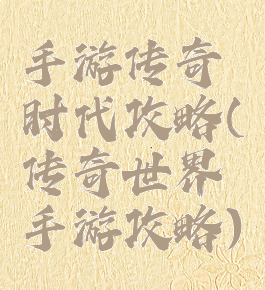 手游传奇
时代攻略(
传奇世界
手游攻略)